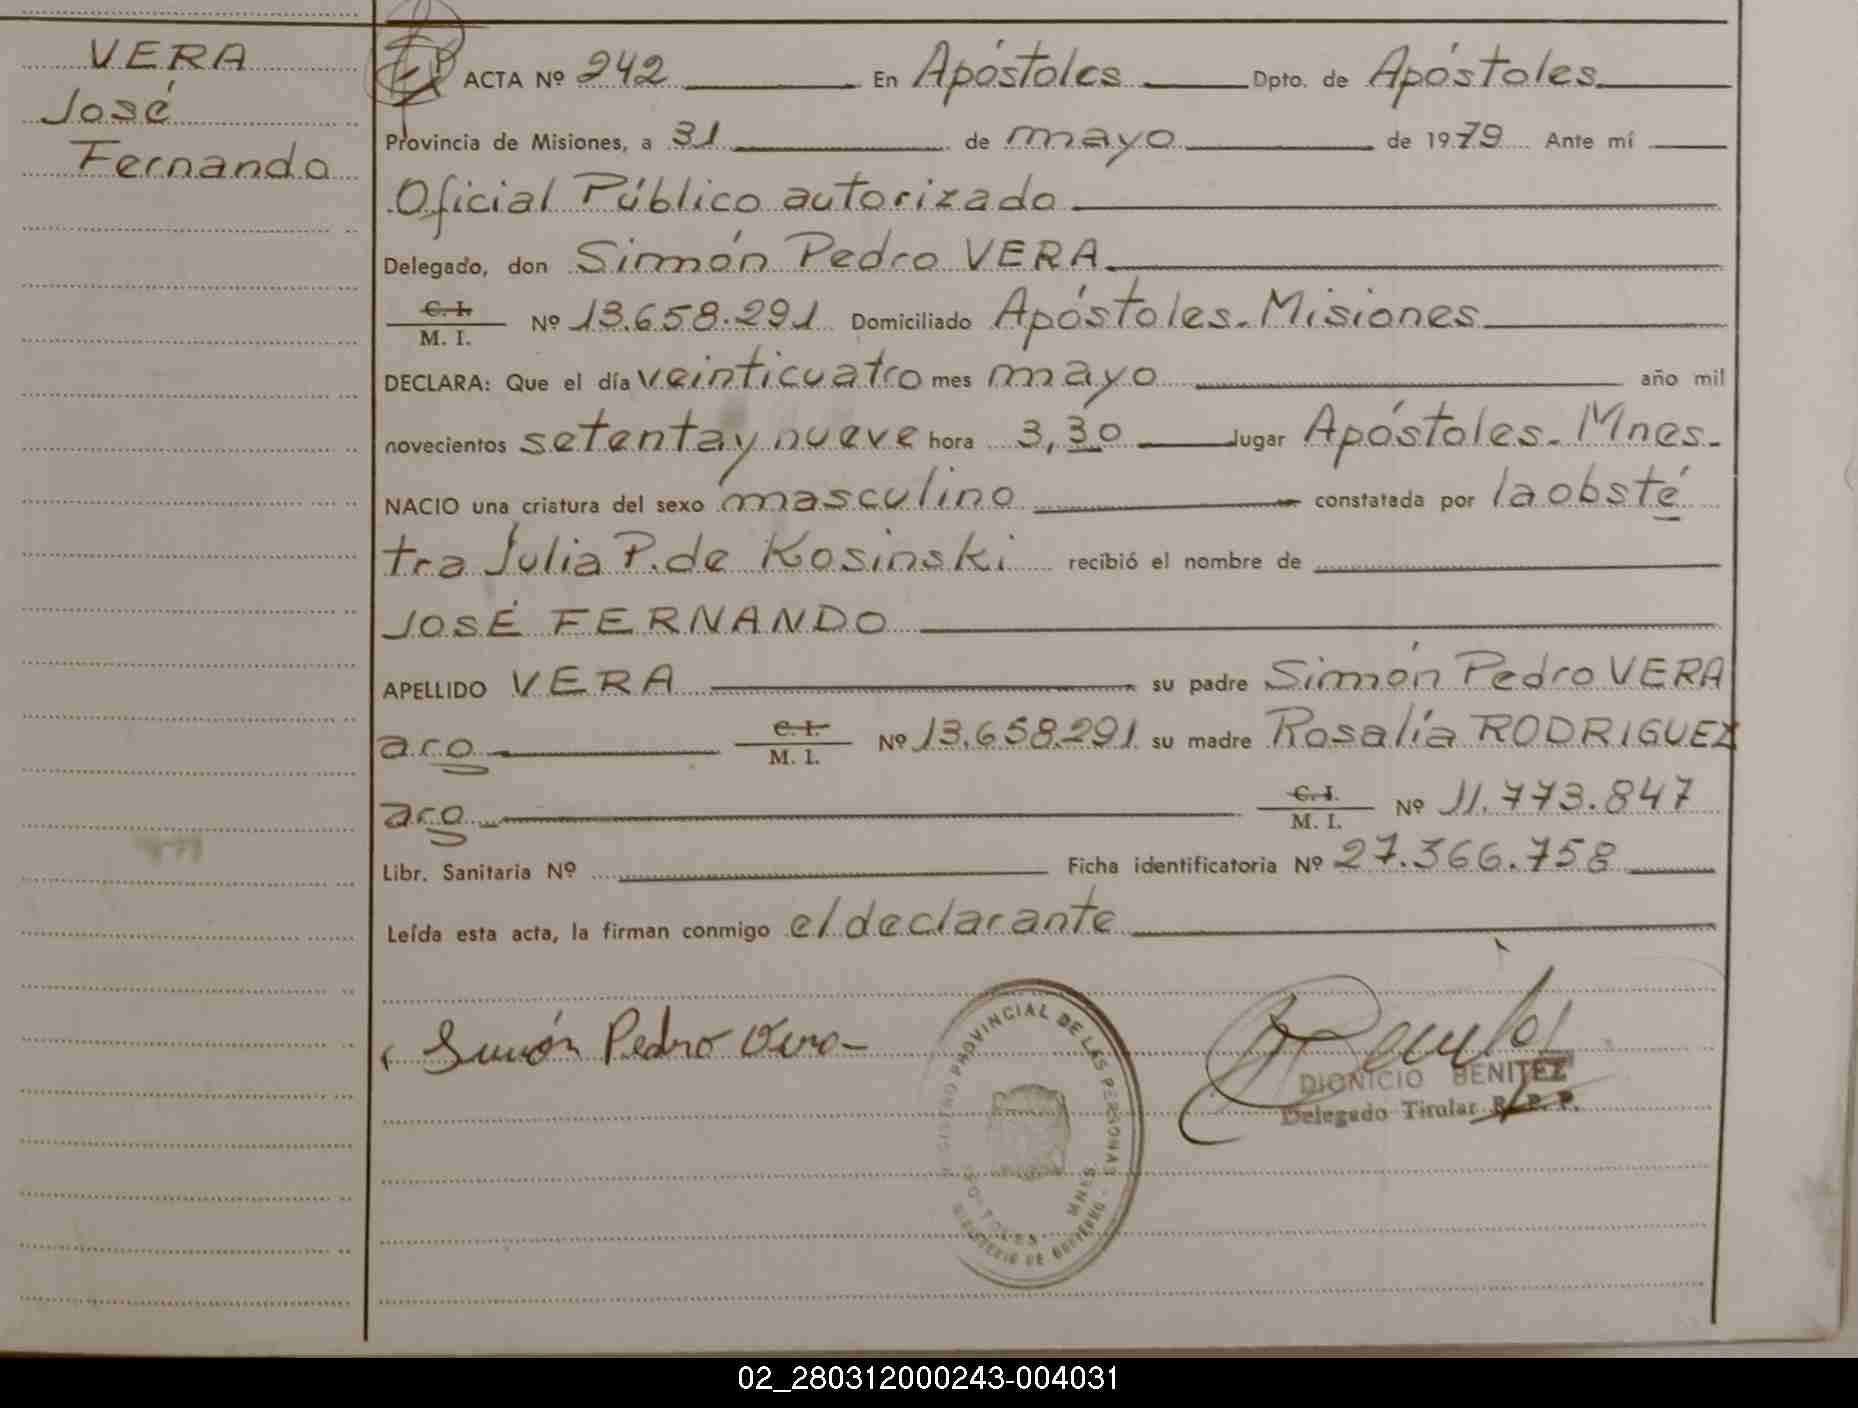 VERA
José
Fernando
ACTA Nº 242 En Apóstoles Dpto. de Apóstoles
Provincia de Misiones, a 31 de mayo de 1979 Ante mí
Oficial Público autorizado
Delegado, don Simón Pedro VERA
C. I.
M. I. Nº 13.658.291 Domiciliado Apóstoles-Misiones
DECLARA: Que el día veinticuatro mes mayo año mil
novecientos setenta y nueve hora 3,30 lugar Apóstoles-Mnes-
NACIO una criatura del sexo masculino constatada por la obsté
tra Julia P. de Kosinski recibió el nombre de
JOSÉ FERNANDO
APELLIDO VERA su padre Simón Pedro VERA
aro C. I. M. I. Nº 13.658.291 su madre Rosalía RODRIGUEZ
aro C. I. M. I. Nº 11.773.847
Libr. Sanitaria Nº Ficha identificatoria Nº 27.366.758
Leída esta acta, la firman conmigo el declarante
Simón Pedro Vera
PROVINCIAL DE LAS PERSONAS
MNES.
DIONICIO BENITEZ
Delegado Titular R. P. P.
02_280312000243-004031